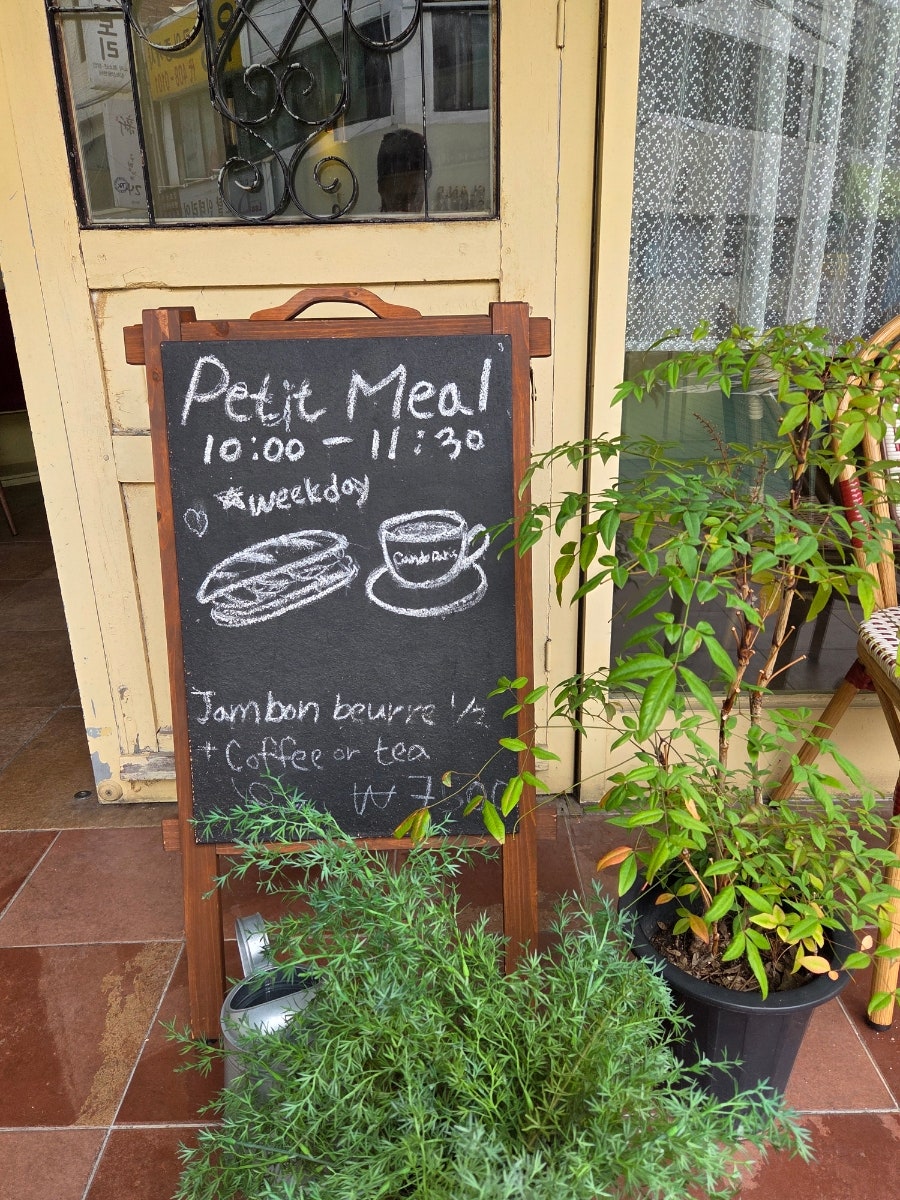 Petit Meal
10:00 - 11:30
*weekday
Jambon beurre 1/2
+ Coffee or tea